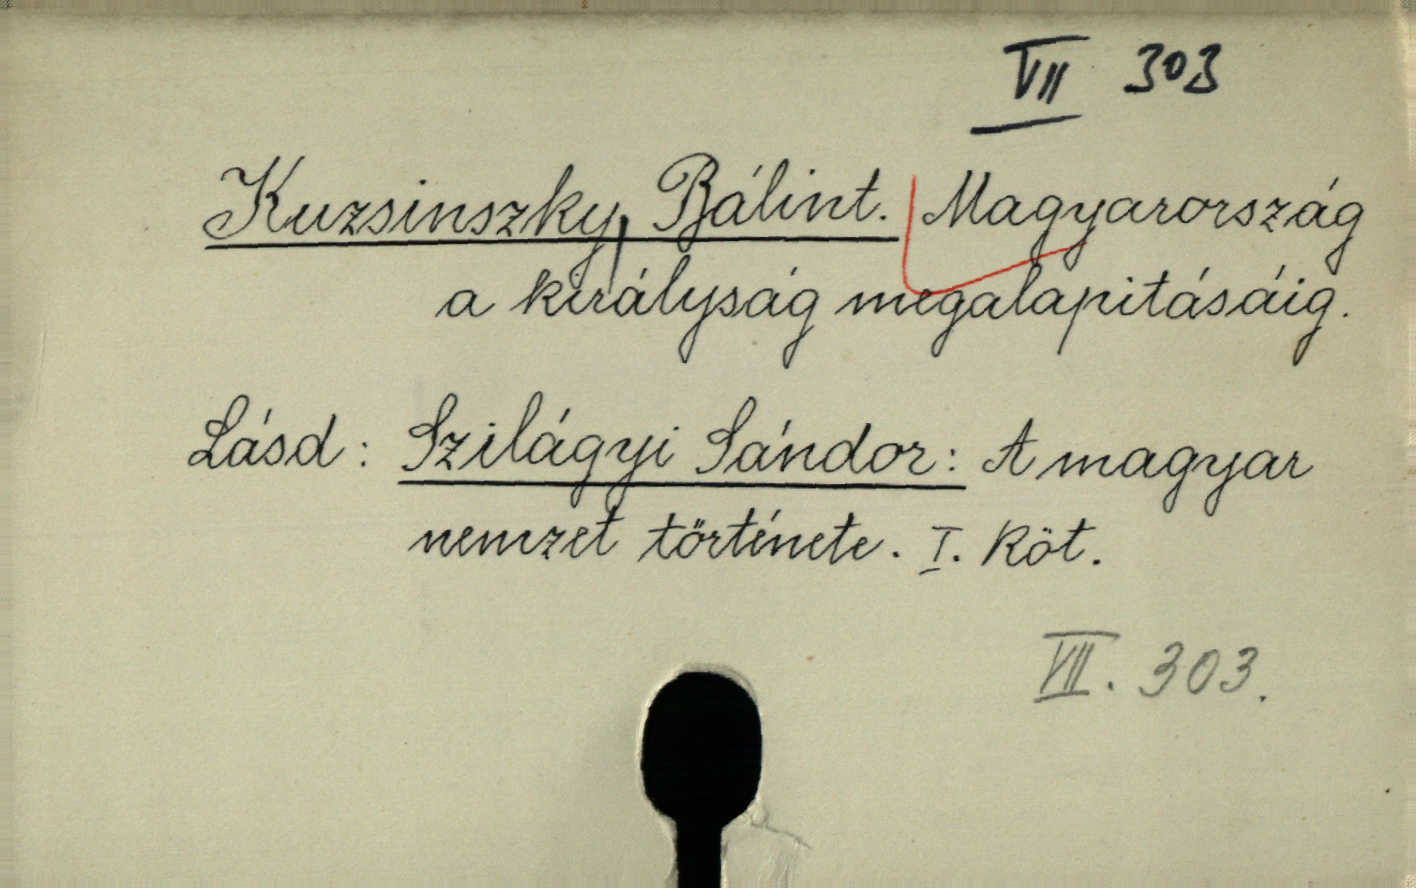 VII 303
Kuzsinszky, Bálint. Magyarország
a királyság megalapitásáig.
Lásd: Szilágyi Sándor: A magyar
nemzet története. I. Köt.
VII. 303.